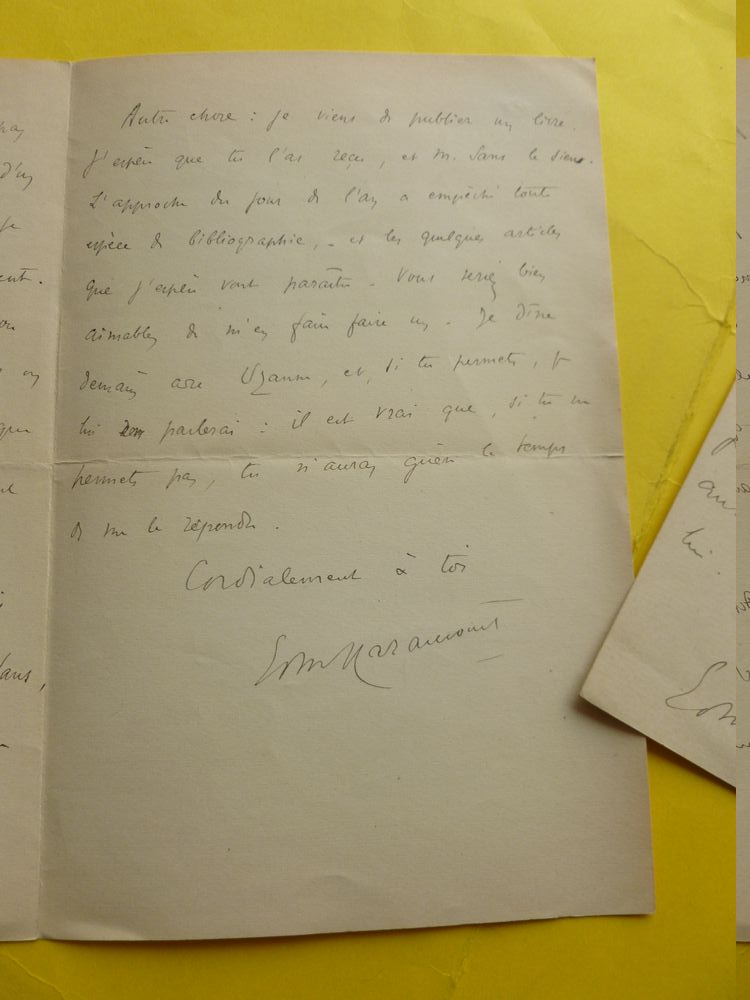 Autre chose : je viens de publier un livre.
J'espère que tu l'as reçu, et M. Sans le sien.
L'approche du jour de l'an a empêché toute
espèce de bibliographie, - et les quelques articles
que j'espère vont paraître. Vous seriez bien
aimables de m'en faire faire un. Je dîne
demain avec Uzanne, et, si tu permets, je
lui en parlerai : il est vrai que, si tu ne
permets pas, tu n'auras guère le temps
de me le répondre.
Cordialement à toi
Edm Haraucourt
pas
d'un
je
ent.
on
que
dans,
au
lui.
Edm